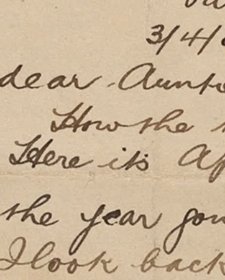 3/4/
dear Auntie
How the
Here it's Ap
the year gon
I look back